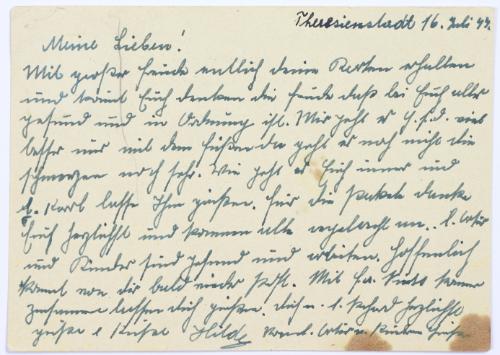 Theresienstadt 16. Juli 44.
Meine Lieben!
Mit großer Freude entlich deine Karten erhalten
und könnt Euch denken die Freude daß bei Euch alles
gesund und in Ordnung ist. Mir geht es G.s.d. viel
besser nur mit dem Füßen da geht es noch nicht die
schmerzen noch sehr. Wie geht es Euch immer und
d. Karl lasse Ihm grüßen. Für die Pakete danke
Euch herzlichst und kommen alle an. l.
und Kinder sind gesund und arbeiten. Hoffentlich
kommt von dir bald wieder Post. Mit Fr.
zusammen lassen dich grüßen. dich u. l. herzlichst
grüße u Küsse Hilde u. Kinder